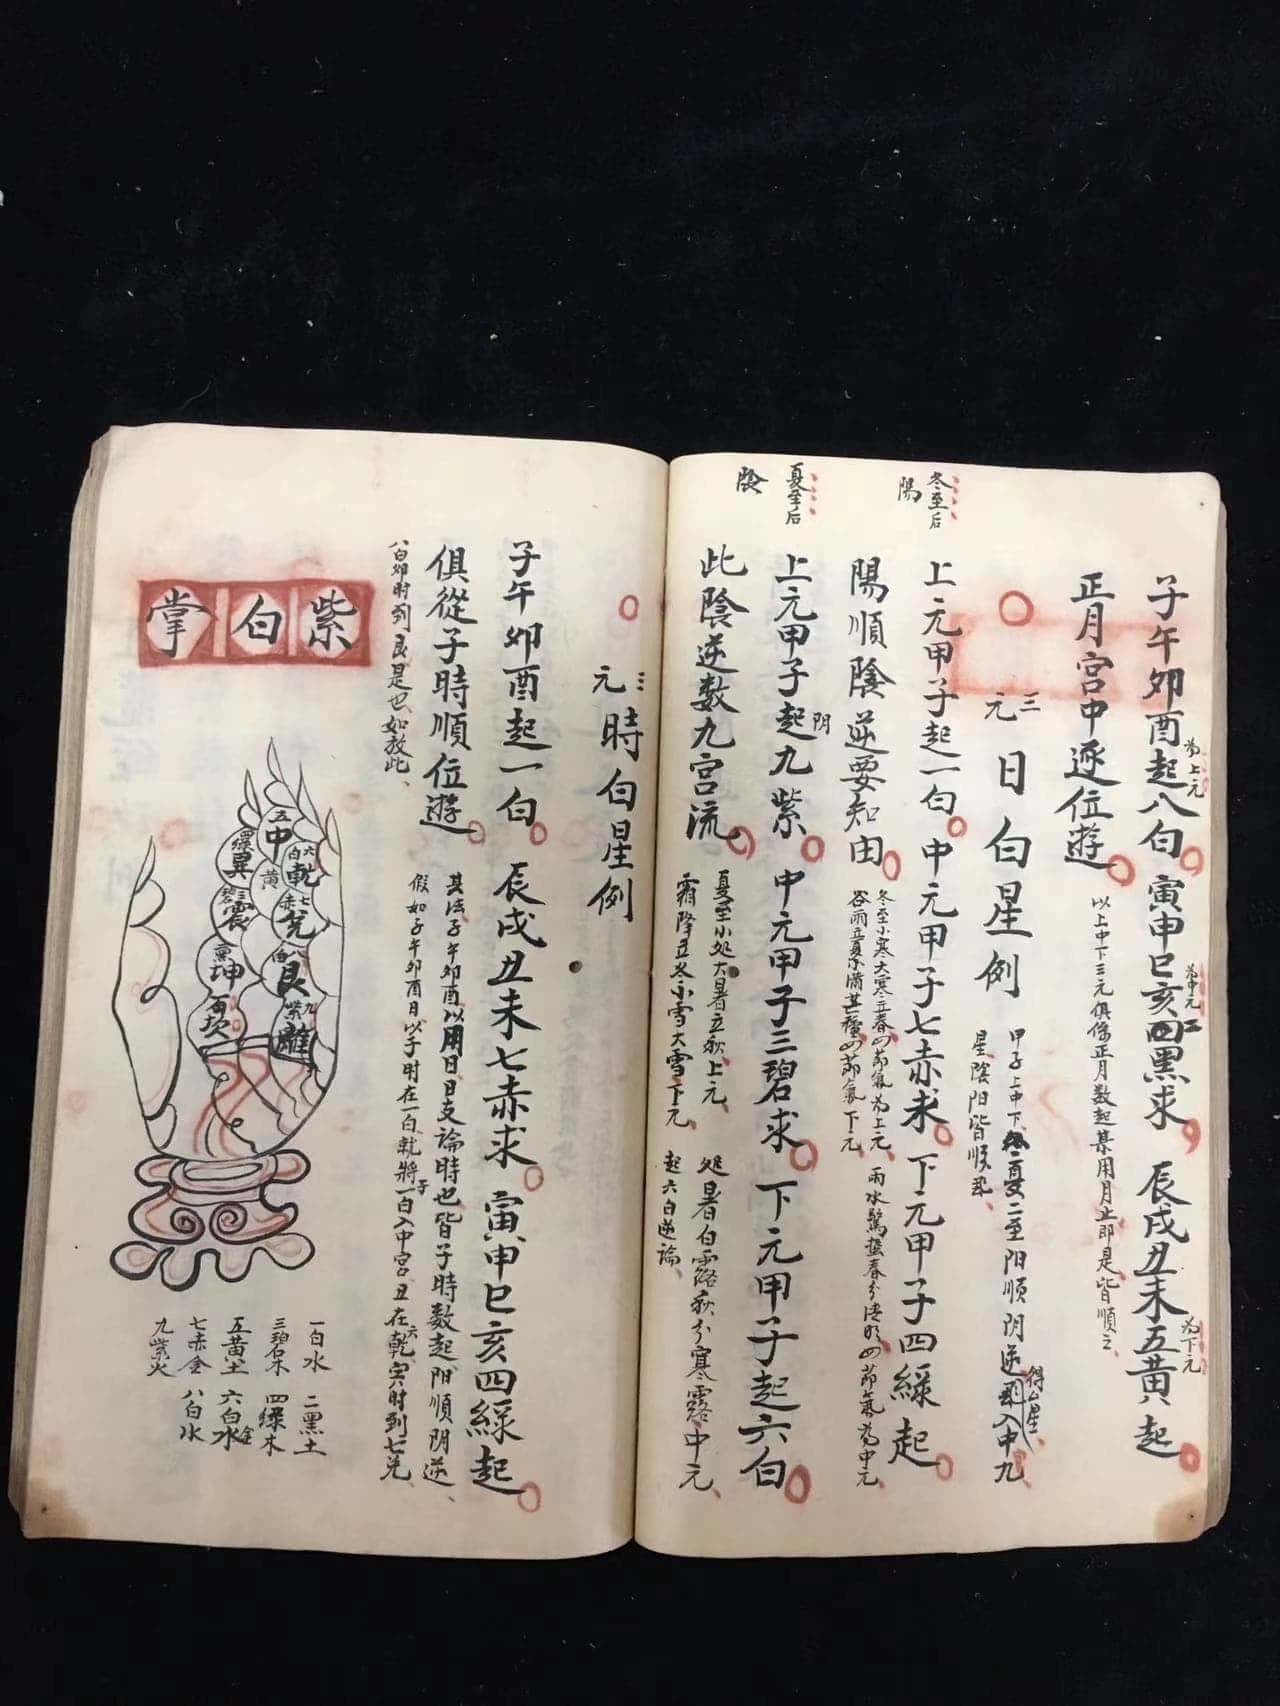 子午卯酉起八白 寅申巳亥二黑求 辰戌丑未五黃起
為上元
為中元
為下元
正月宮中逐位遊
以上中下三元俱係正月数起某用月止即是皆順之
三元日白星例
甲子上中下 夏二至阳順阴逆 入中九
得山星
星陰阳皆順飛
冬至后
陽
上元甲子起一白 中元甲子七赤求 下元甲子四綠起
陽順陰逆要知由
冬至小寒大寒立春四節氣為上元 雨水驚蟄春分清明四節氣為中元
谷雨立夏小滿芒種四節氣下元
夏至后
陰
上元甲子起九紫 中元甲子三碧求 下元甲子起六白
阴
此陰逆数九宮流
夏至小处大暑立秋上元 処暑白露秋分寒露中元
霜降立冬小雪大雪下元 起六白逆論
三元時白星例
子午卯酉起一白 辰戌丑未七赤求 寅申巳亥四綠起
俱從子時順位遊
其法子午卯酉以用日日支論時也皆子時数起阳順阴逆
假如子午卯酉日以子时在一白就將一白入中宮丑在六乾寅时到七兌
八白卯时到艮是也如放此
紫白掌
五中黃
六白乾
七赤兌
八白艮
九紫離
四綠巽
三碧震
二黑坤
一白坎
一白水 二黑土
三碧木 四綠木
五黃土 六白水金
七赤金 八白水
九紫火